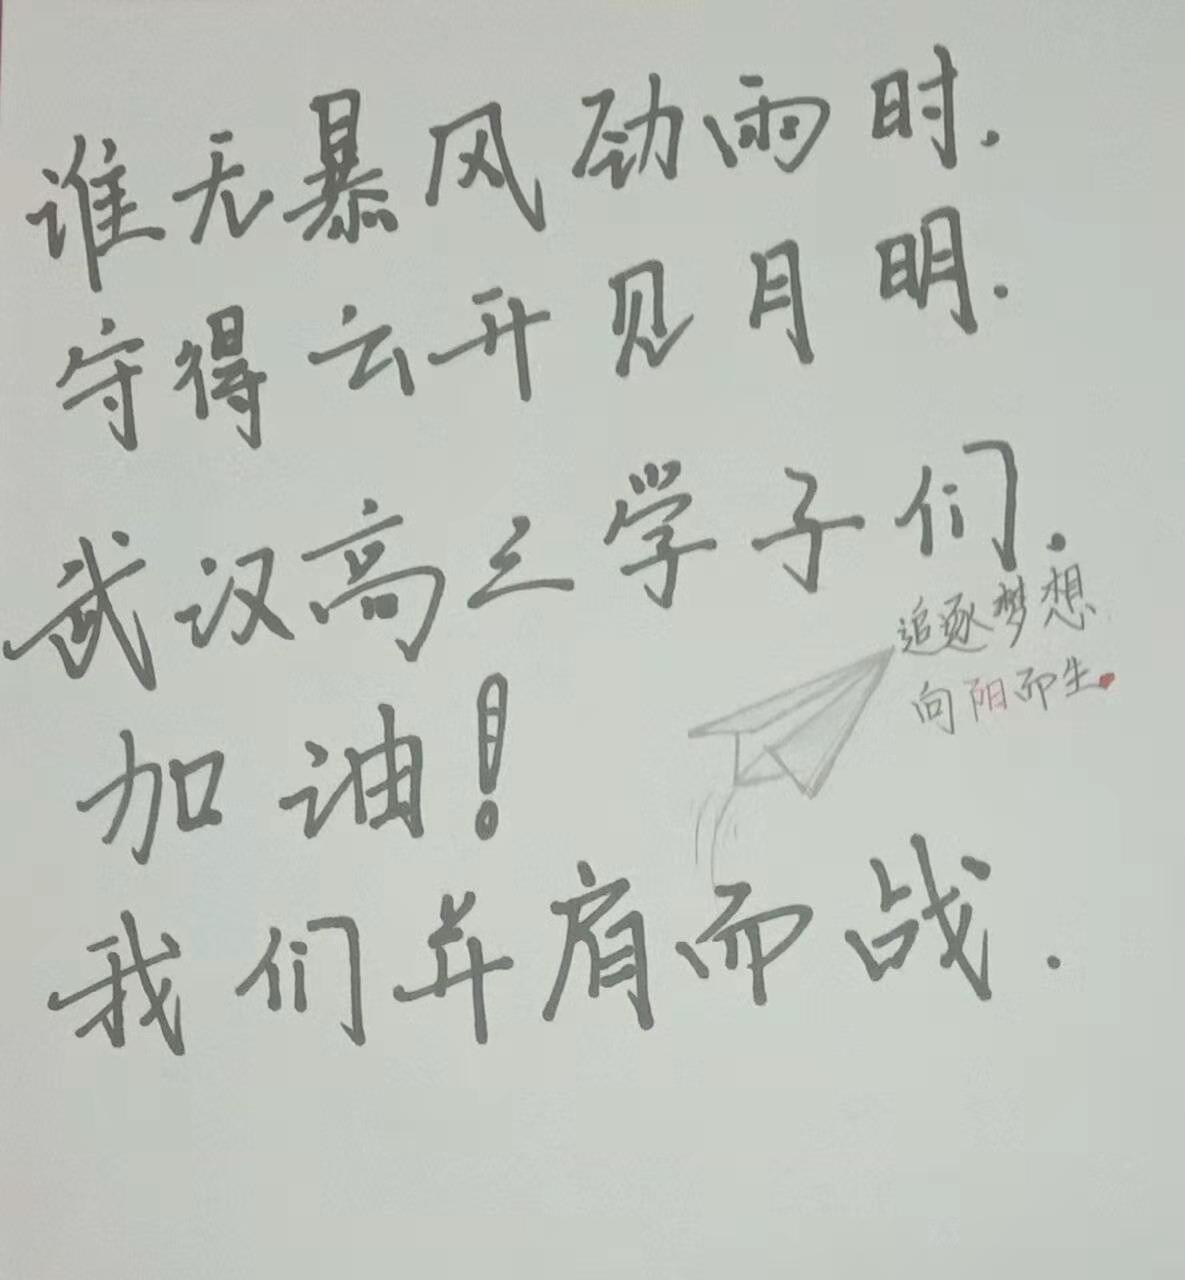 谁无暴风劲雨时.
守得云开见月明.
武汉高三学子们.
追逐梦想
向阳而生.
加油!
我们并肩而战.